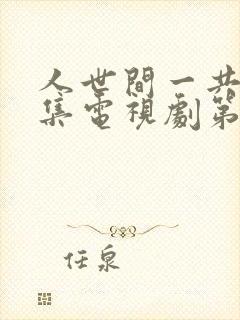 人世間一共
集電視劇第
任泉